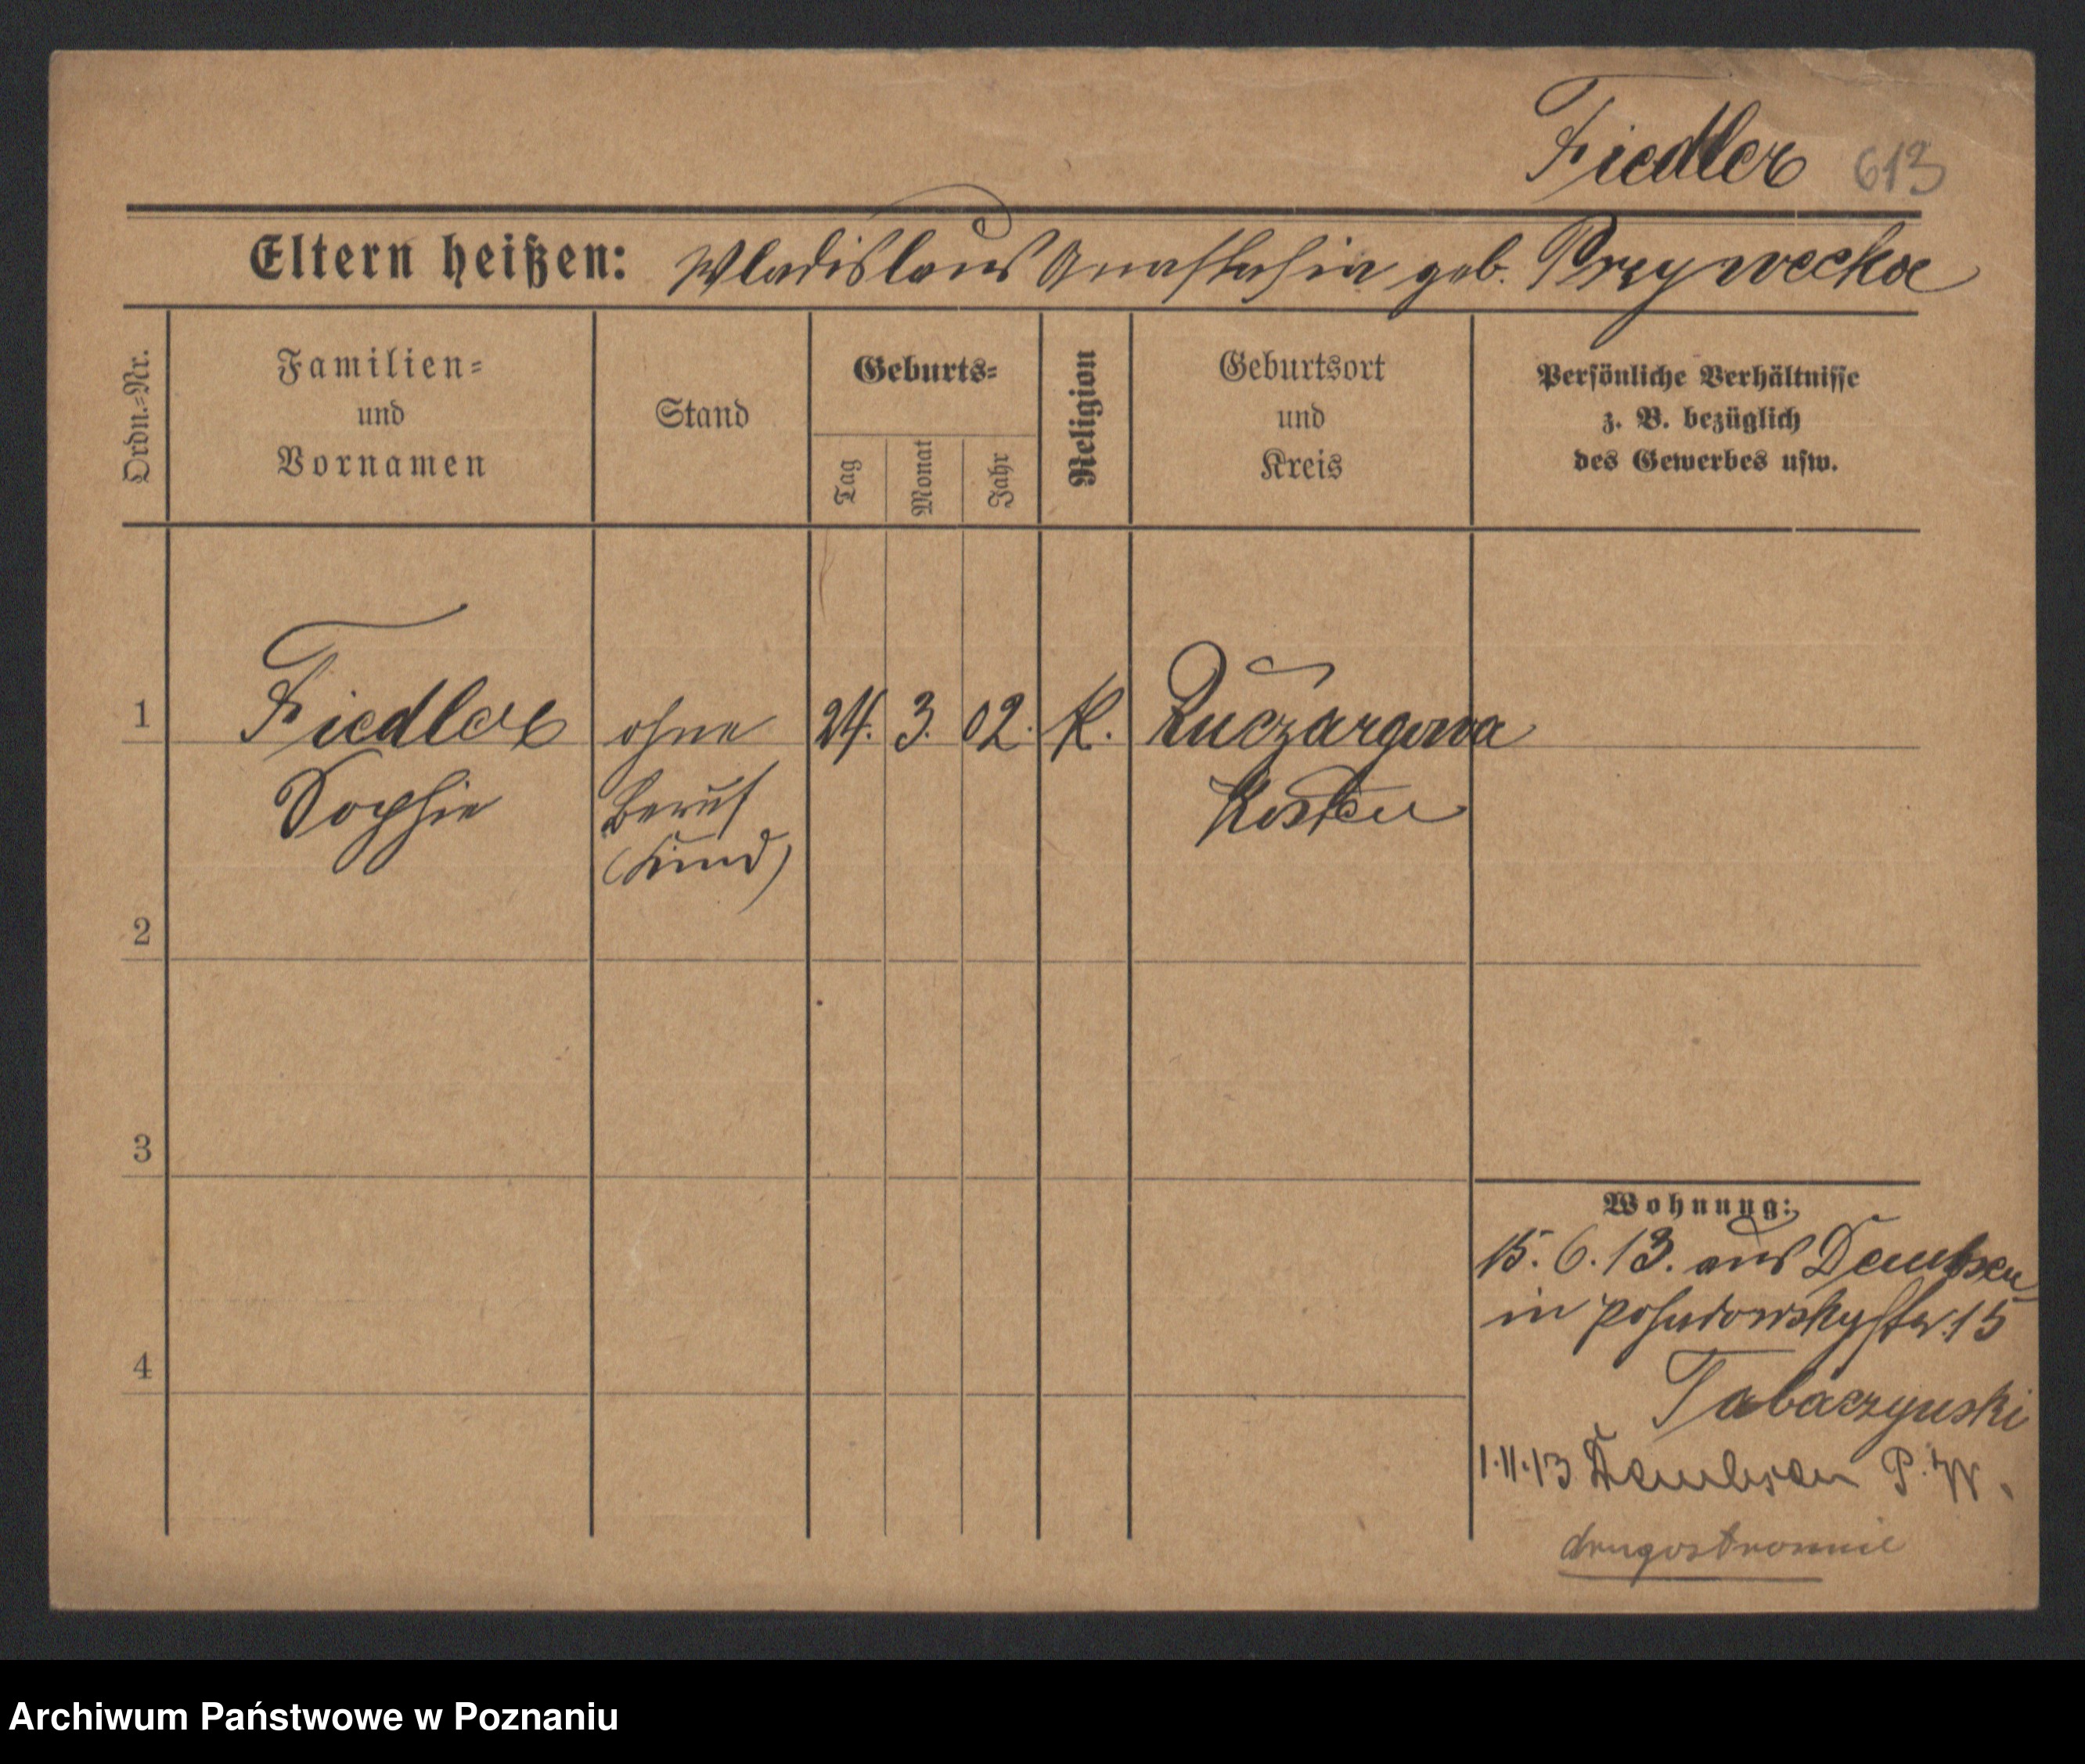 Fiedler 613
Eltern heißen: Wladislaus Anastasia geb. Przywecka
Ordn.-Nr.
Familien-
und
Vornamen
Stand
Geburts-
Tag
Monat
Jahr
Religion
Geburtsort
und
Kreis
Persönliche Verhältnisse
z. B. bezüglich
des Gewerbes usw.
1 Fiedler ohne 24. 3. 02. K.
Sophie Beruf Kosten
(Kind)
2
3
4
Wohnung:
15. 6. 13. aus Dembsen
in Posadowskystr. 15
Tabaczynski
1.11.13 Dembsen P. W.
drugostronnie
Archiwum Państwowe w Poznaniu